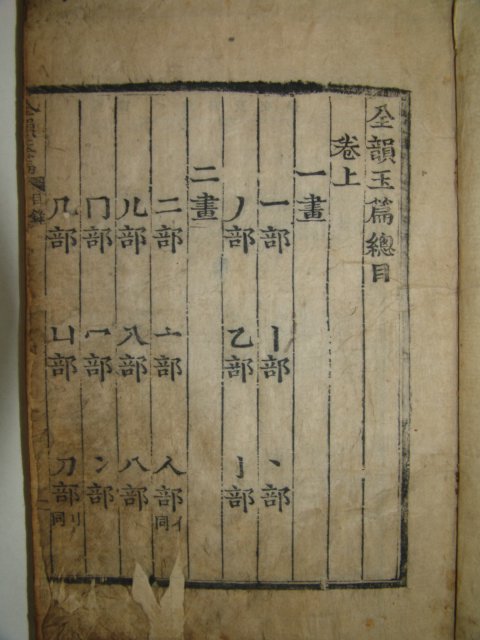 全韻玉篇總目
卷上
一畫
一部 丨部 丶部
丿部 乙部 亅部
二畫
二部 亠部 人部亻同
儿部 入部 八部
冂部 冖部 冫部
几部 凵部 刀部刂同
全韻玉篇 目錄